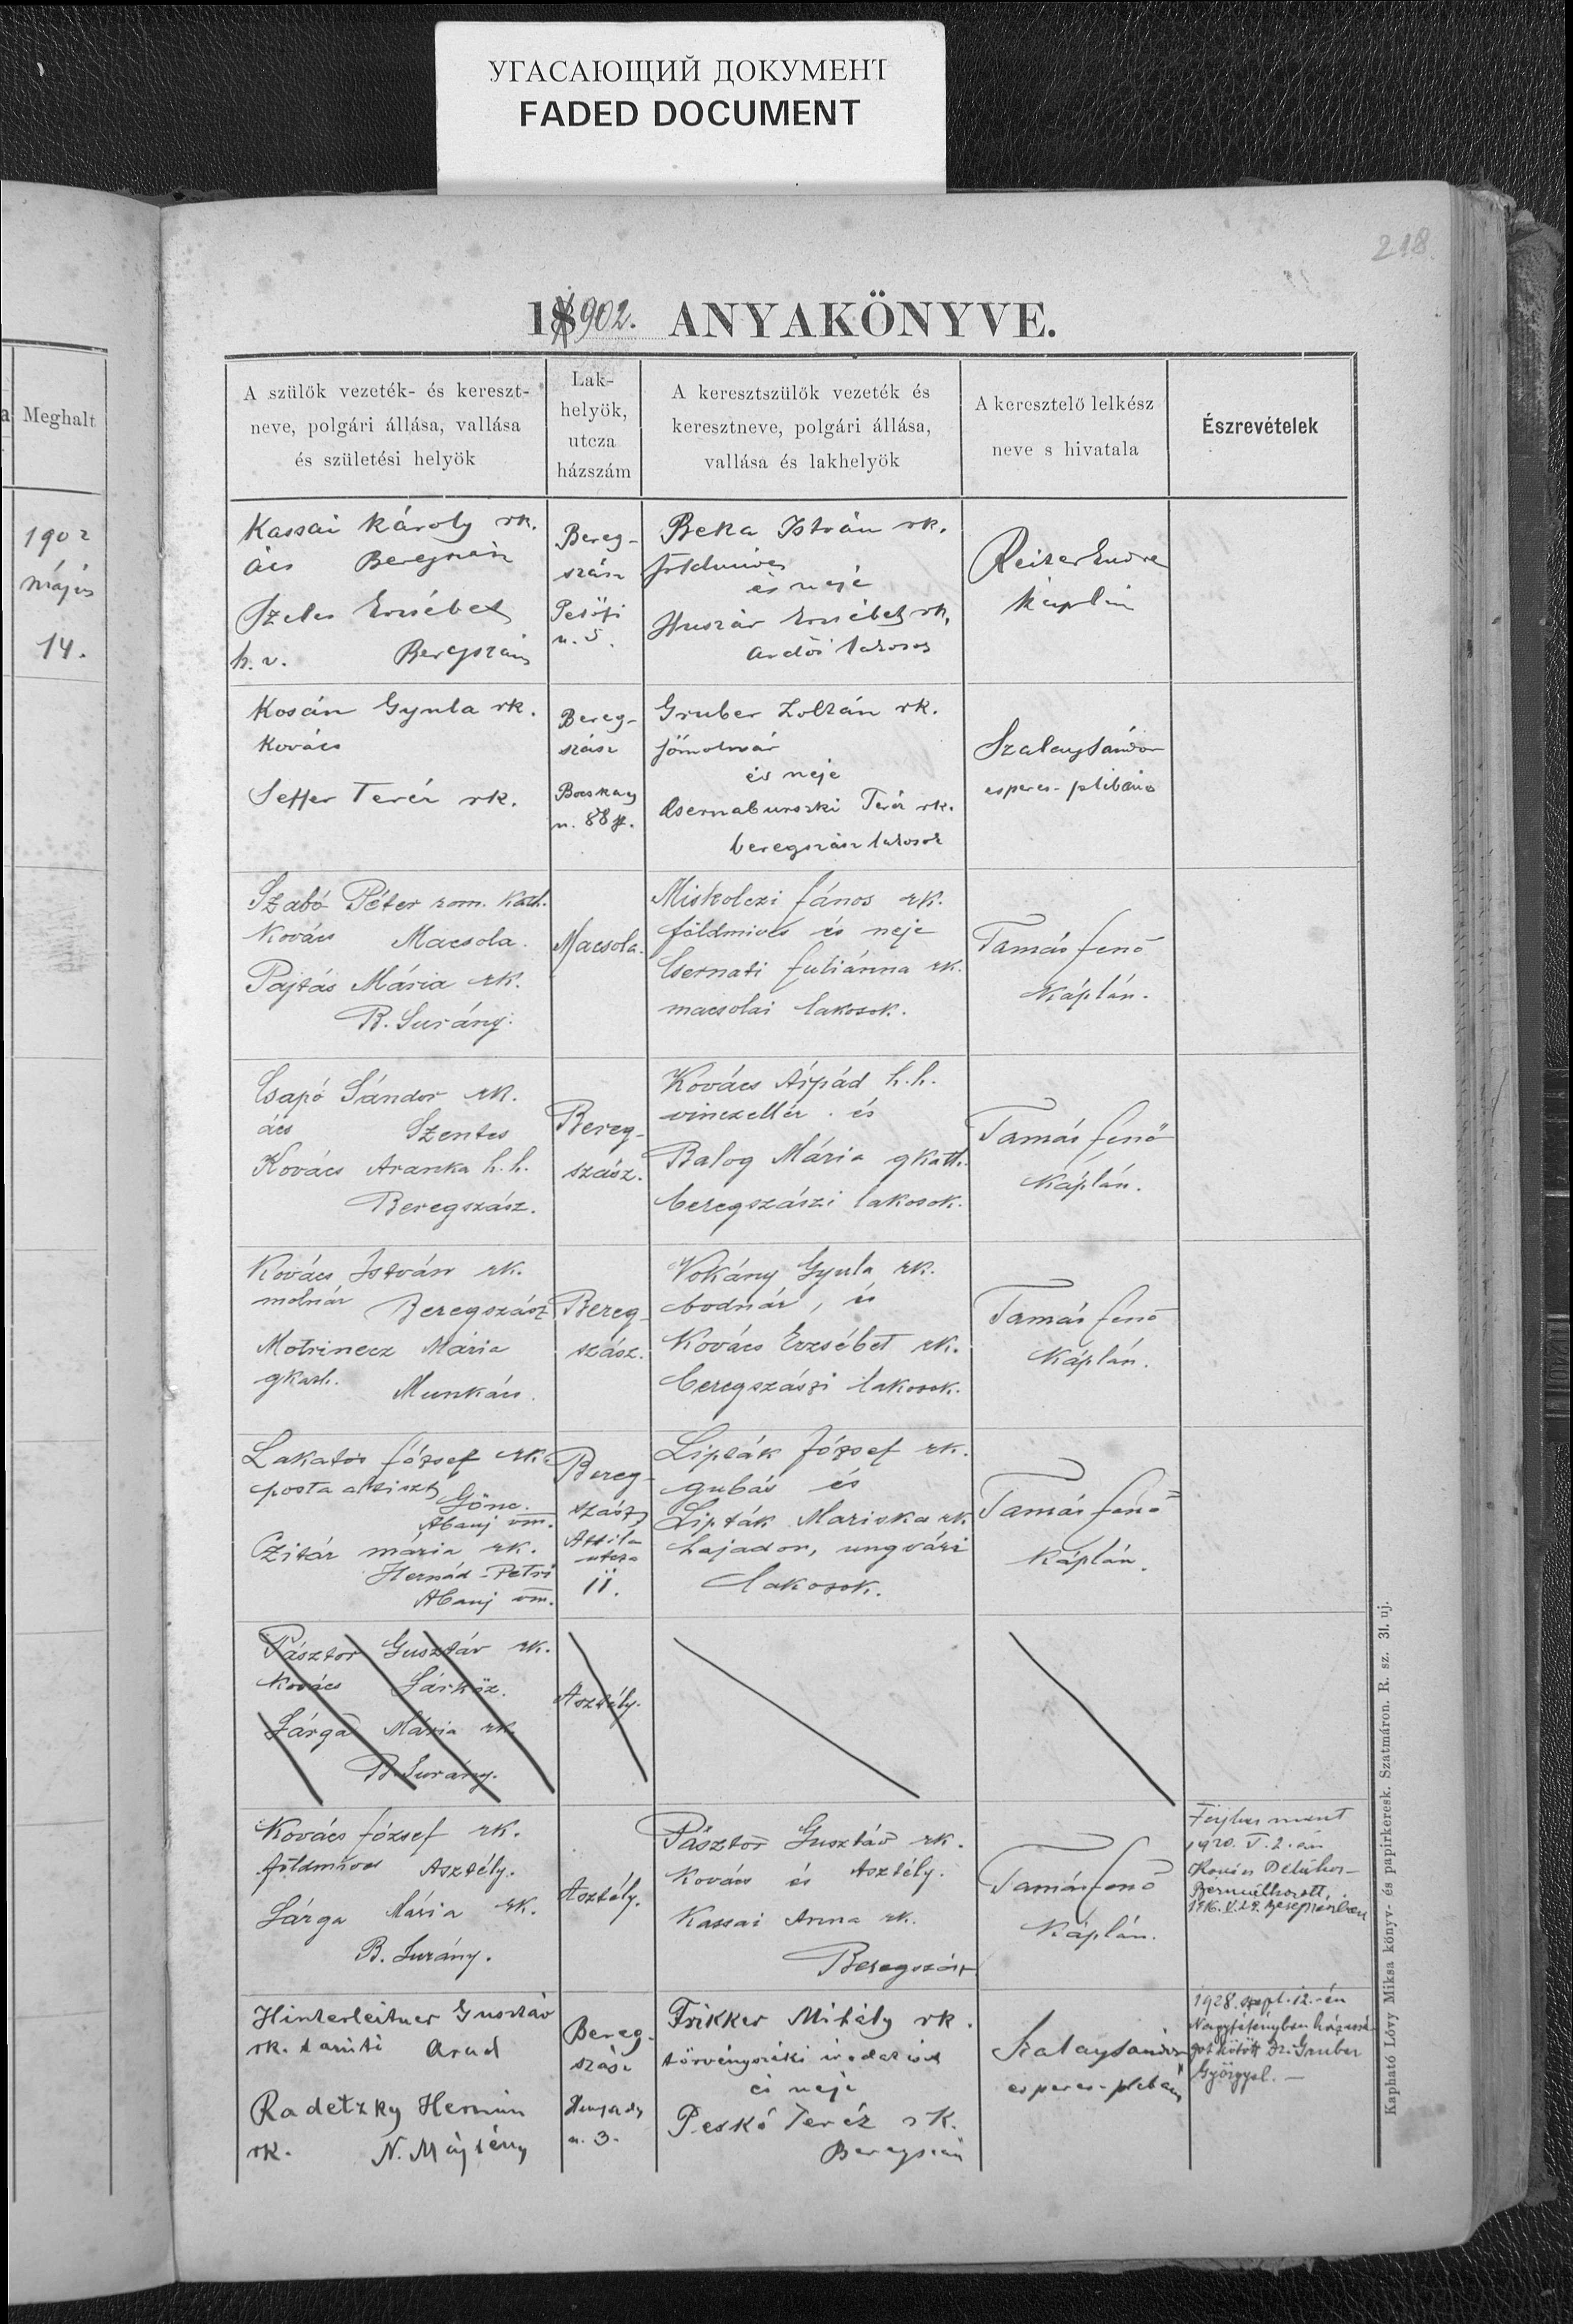 УГАСАЮЩИЙ ДОКУМЕНТ
FADED DOCUMENT
218.
1902. ANYAKÖNYVE.
Meghalt
1902
május
14.
A szülők vezeték- és kereszt-
neve, polgári állása, vallása
és születési helyök
Lak-
helyök,
utcza
házszám
A keresztszülők vezeték és
keresztneve, polgári állása,
vallása és lakhelyök
A keresztelő lelkész
neve s hivatala
Észrevételek
Kassai Károly rk.
ács Beregszász
Szeles Erzsébet
h. v. Beregszász
Bereg-
szász
Petőfi
u. 5.
Beka István rk.
földmives
és neje
Huszár Erzsébet rk,
ardói lakosok
Reiter Endre
káplán
Kosán Gyula rk.
Kovács
Seffer Teréz rk.
Bereg-
szász
Bocskay
u. 88
Gruber Zoltán rk.
főmolnár
és neje
Csernaburszki Teréz rk.
beregszász lakosok
Szalay Sándor
esperes-plébános
Szabó Péter rom. kath.
Kovács Macsola.
Pajtás Mária rk.
B. Surány.
Macsola.
Miskolczi János rk.
földmives és neje
Csernati Juliánna rk.
macsolai lakosok.
Tamás Jenő
Káplán.
Csapó Sándor rk.
ács Szentes
Kovács Aranka h. h.
Beregszász.
Bereg-
szász.
Kovács Árpád h. h.
vinczellér és
Balog Mária gkath.
beregszászi lakosok.
Tamás Jenő
Káplán.
Kovács István rk.
molnár Beregszász
Motrinecz Mária
gkath. Munkács.
Bereg-
szász.
Vokány Gyula rk.
bodnár, és
Kovács Erzsébet rk.
beregszászi lakosok.
Tamás Jenő
Káplán.
Lakatos József rk.
posta altiszt Gönc.
Abauj vm.
Czitár mária rk.
Hernád-Petri
Abauj vm.
Bereg-
szász
Attila
utcza
11.
Lipták József rk.
gubás és
Lipták Mariska rk.
hajadon, ungvári
lakosok.
Tamás Jenő
Káplán.
Pásztor Gusztáv rk.
Kovács Sárköz.
Sárga Mária rk.
B. Surány.
Asztély.
Kovács József rk.
földmives Asztély.
Sárga Mária rk.
B. Surány.
Asztély.
Pásztor Gusztáv rk.
Kovács és Asztély.
Kassai Anna rk.
Beregszász
Tamás Jenő
Káplán.
Férjhez ment
1920. V. 2. án
Bérmálkozott
Hinterleitner Gusztáv
rk. tanító Arad
Radetzky Hermin
rk. N. Majtény
Bereg-
szász
Hunyady
u. 3.
Frikker Mihály rk.
törvényszéki irodatiszt
és neje
Peskó Teréz rk.
Beregszász
Szalay Sándor
esperes-plebán
1928. szept. 12.-én
Nagytétényben házassá-
got kötött Dr. Gruber
Györgyel. —
Kapható Lővy Miksa könyv- és papirkeresk. Szatmáron. R. sz. 3l. uj.